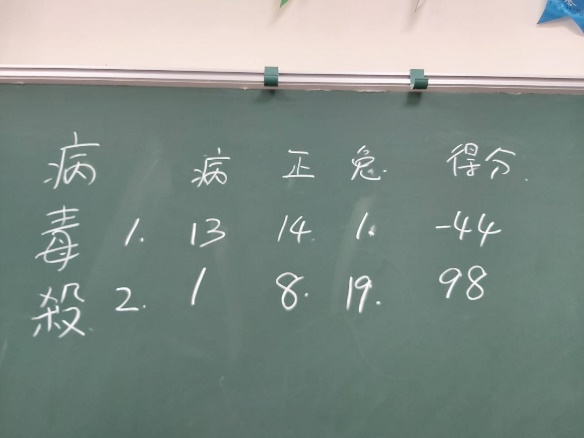 病毒殺
病 正 兔 得分.
1. 13 14. 1. -44
2. 1 8. 19. 98